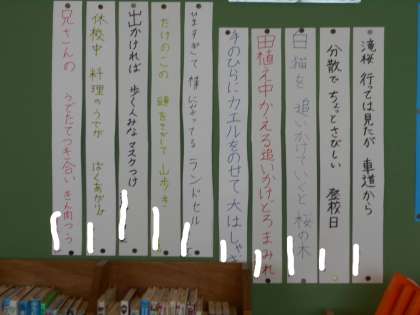 滝桜 行っては見たが 車道から
分散で ちょっとさびしい 登校日
白猫を 追いかけていくと 桜の木
田植え中 かえる追いかけ どろまみれ
手のひらに カエルをのせて 大はしゃぎ
ひますぎて 棒になってる ランドセル
たけのこの 頭をさがして 山歩き
出かければ 歩く人みな マスクつけ
休校中 料理のうでが ばくあがり
兄さんの うでたてつき合い きん肉つう